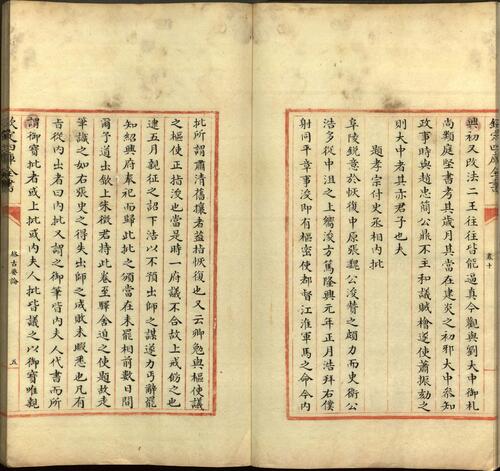 欽定四庫全書
卷十
興初又改法二王往往皆能逼真今觀與劉大中御札
尚類庭堅書考其歲月其當在建炎之初邪大中叅知
政事時與趙忠簡公鼎不主和議賊檜遂使蕭振劾之
則大中者其亦君子也夫
題孝宗付史丞相内批
阜陵鋭意於恢復中原張魏公浚賛之頗力而史衛公
浩多從中沮之上嚮浚方篤隆興元年正月浩拜右僕
射同平章事浚即有樞密使都督江淮軍馬之命今内
批所謂肅清舊攘者葢指恢復也又云卿勉與樞使議
之樞使正指浚也當是時一府議不合故上戒飭之也
逮五月親征之詔下浩以不預出師之謀遂力丐辭罷
知紹興府奉祀而歸此批之頒當在未罷相前數日間
爾予道出歙上朱徵君持此卷至驛舍迫之使題故走
筆識之如右張史之得失出師之成敗未暇悉也凡有
旨從内出者曰内批又謂之御筆皆内夫人代書而所
謂御寳批者或上批或内夫人批皆識之以御寳唯親
欽定四庫全書
格古要論
五